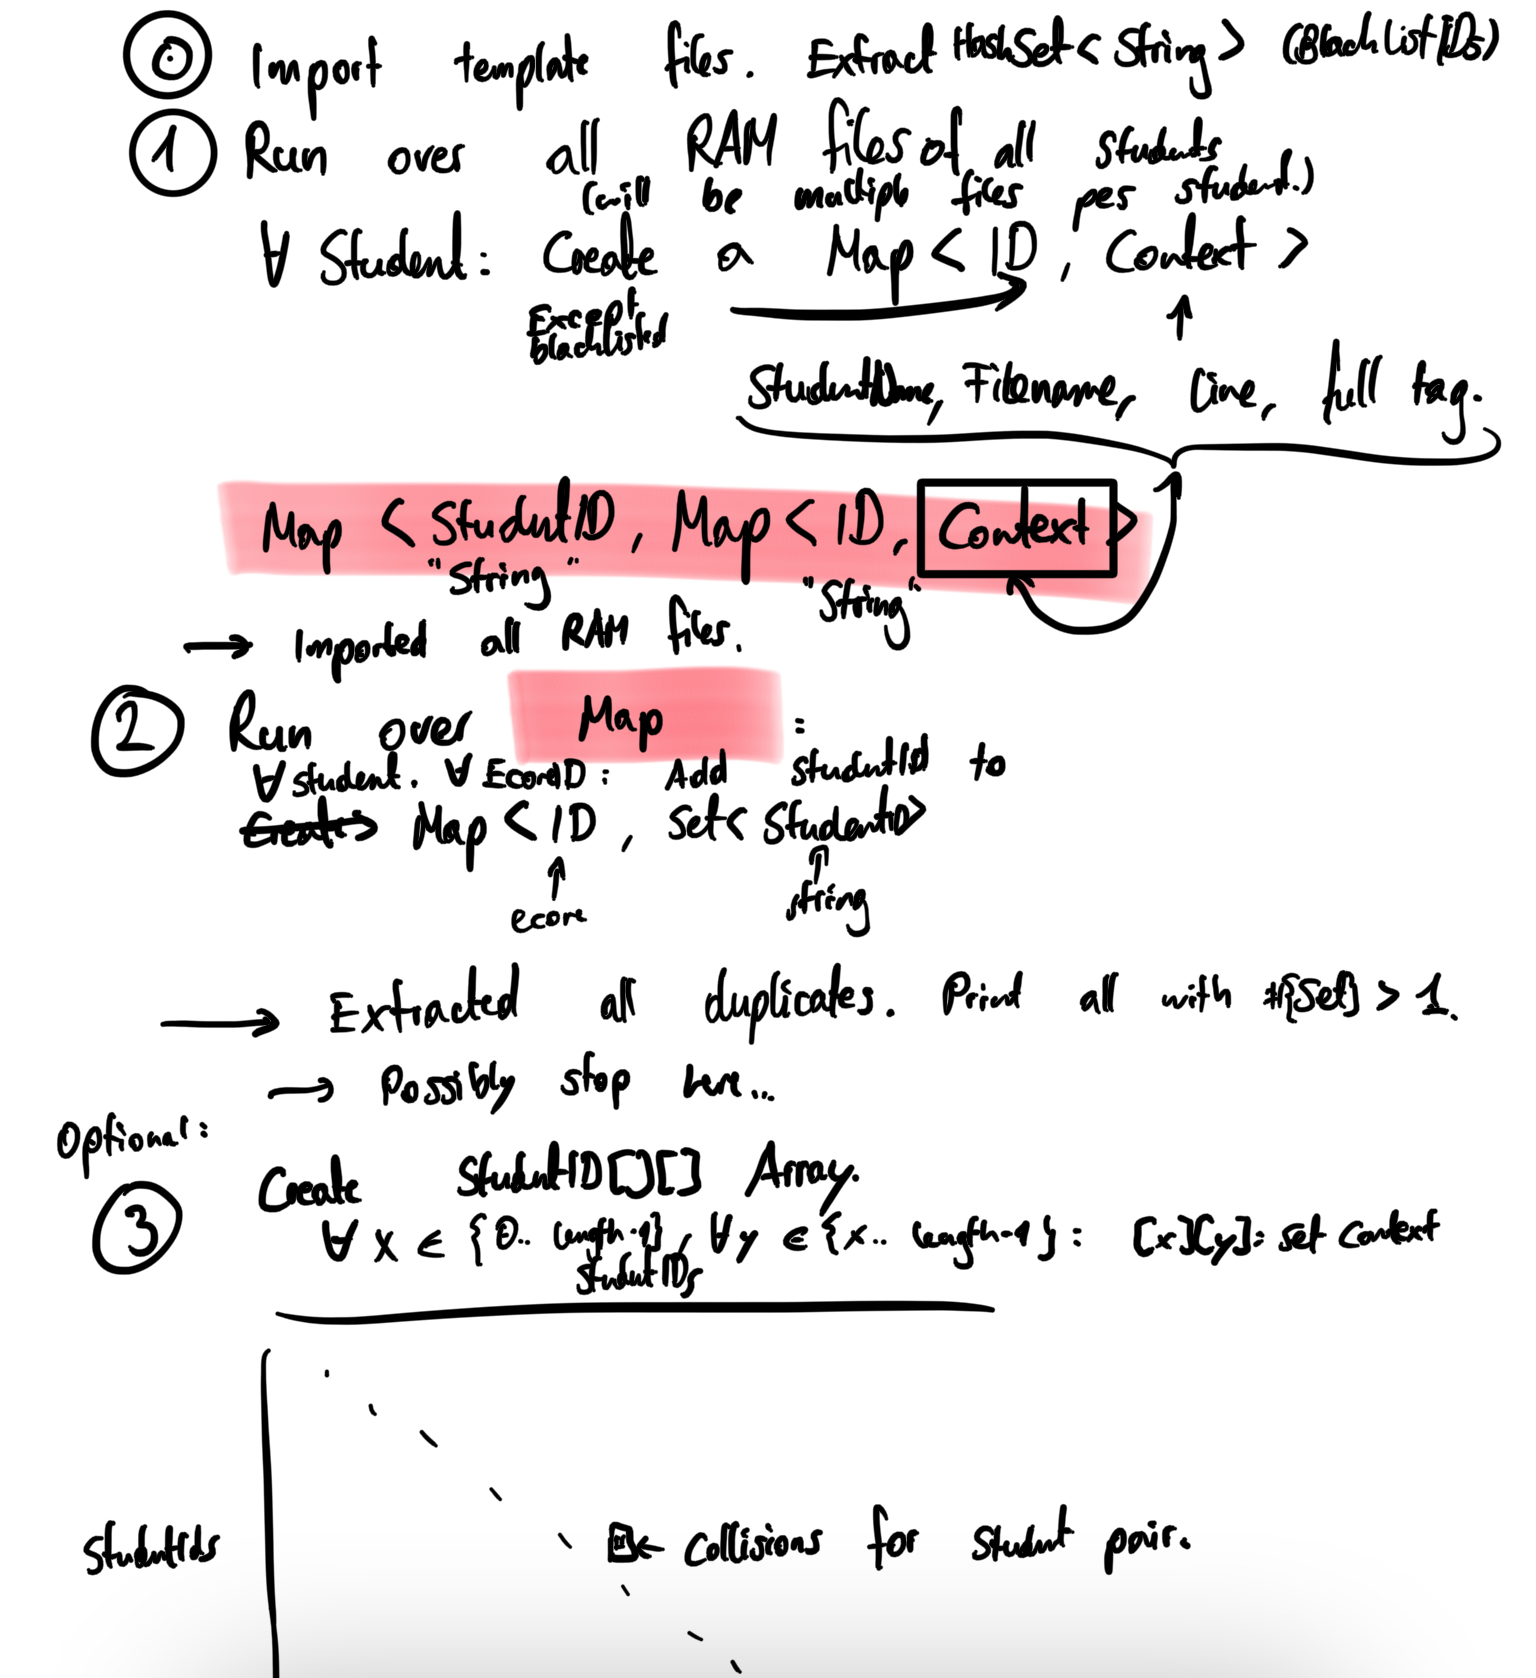 0 Import template files. Extract HashSet<String> (BlackListIDs)
1 Run over all RAM files of all students
(will be multiple files per student.)
∀ Student: Create a Map<ID, Context>
Except
blacklisted
↑
StudentName, Filename, Line, full tag.
Map <StudentID, Map<ID, Context>
"String" "String"
→ Imported all RAM files.
2 Run over Map :
∀ student. ∀ EcoreID: Add StudentId to
Create> Map <ID, Set<StudentID>
↑ ↑
ecore string
→ Extracted all duplicates. Print all with #{Set} > 1.
→ Possibly stop here...
Optional:
3 Create StudentID[][] Array.
∀ x ∈ {0.. length-1}, ∀y ∈ {x.. length-1}: [x][y]: set context
StudentIDs
StudentIds
← Collisions for student pair.